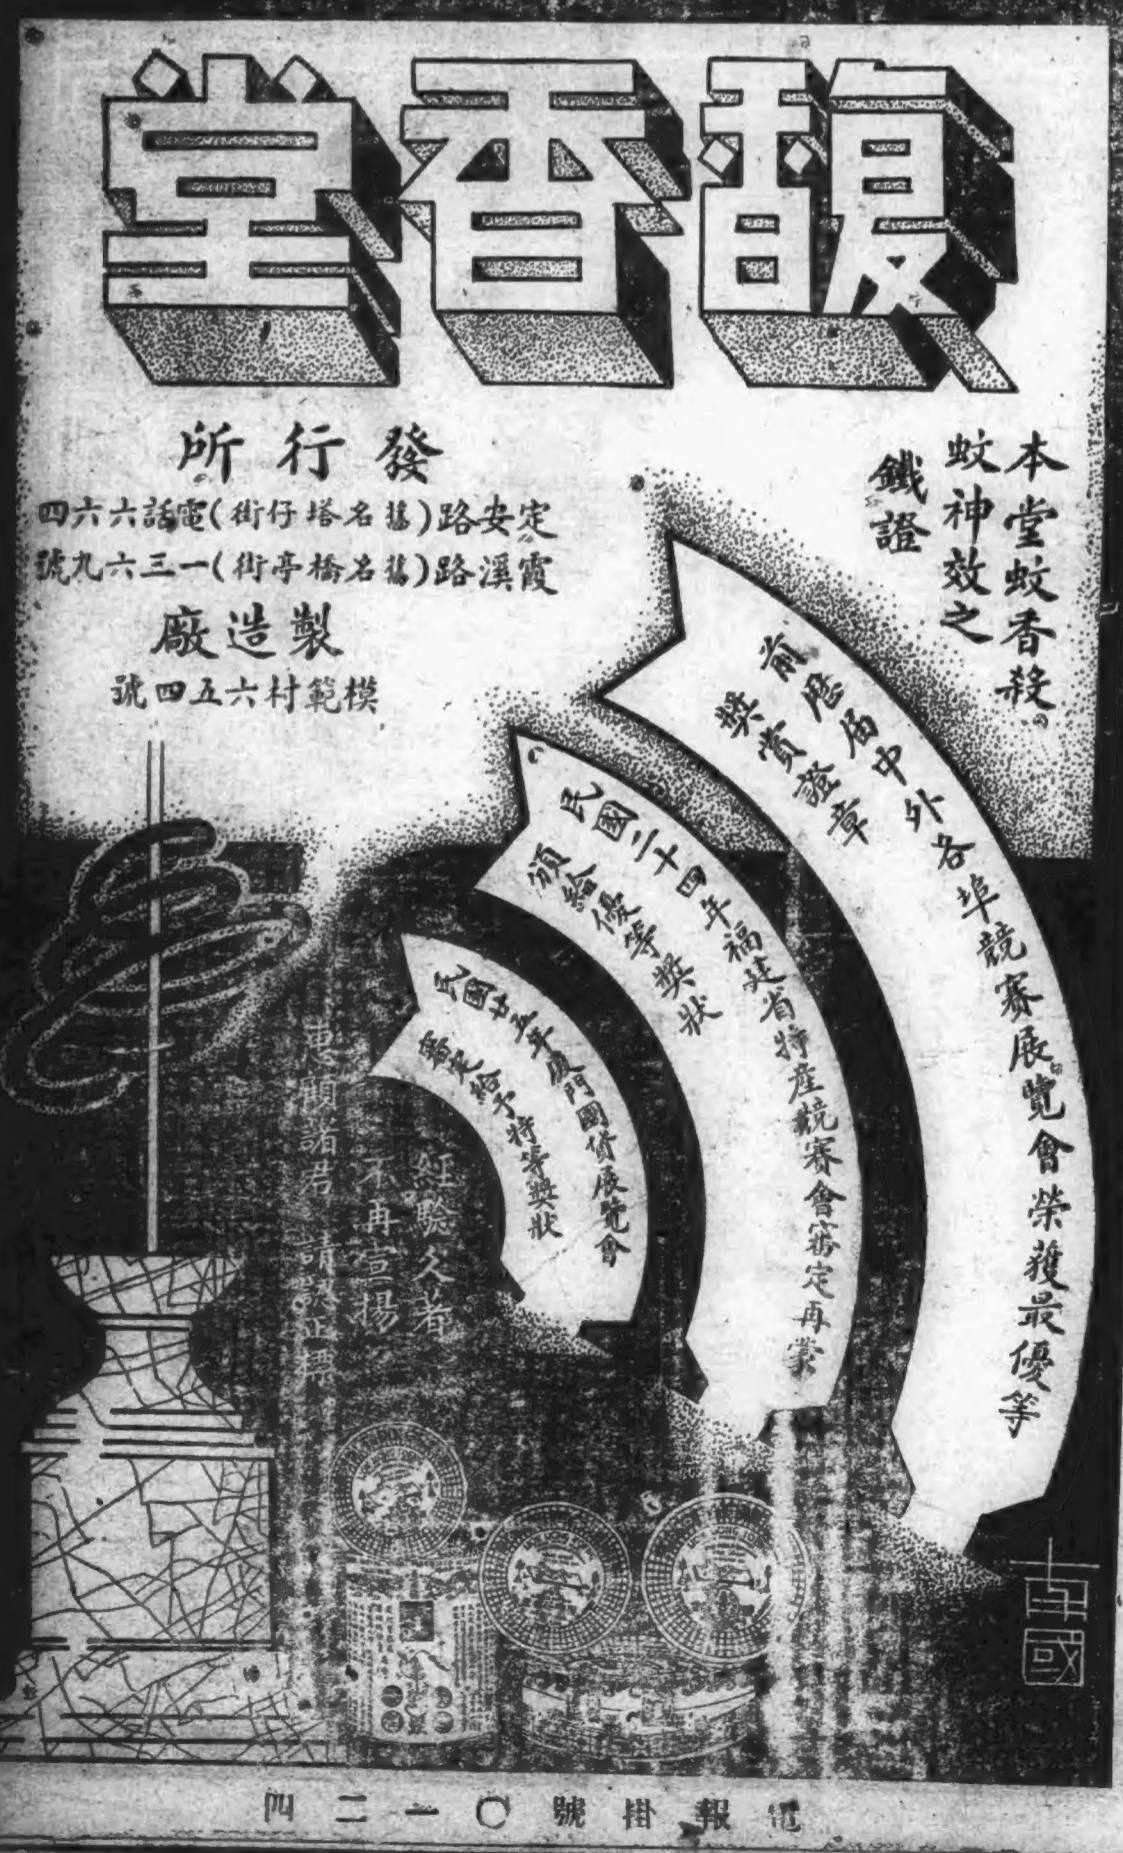 馥香堂
本堂蚊香殺
蚊神效之
鐵證
發行所
定安路(舊名塔仔街)電話六六四
霞溪路(舊名橋亭街)一三六九號
製造廠
模範村六五四號
前歷屆中外各埠競賽展覽會榮獲最優等
獎賞證章
民國二十四年福建省特產競賽會審定再蒙
頒給優等獎狀
民國廿五年廈門國貨展覽會
審定給予特等獎狀
經驗久著
不再宣揚
惠顧諸君 請認正標
電報掛號〇一二四